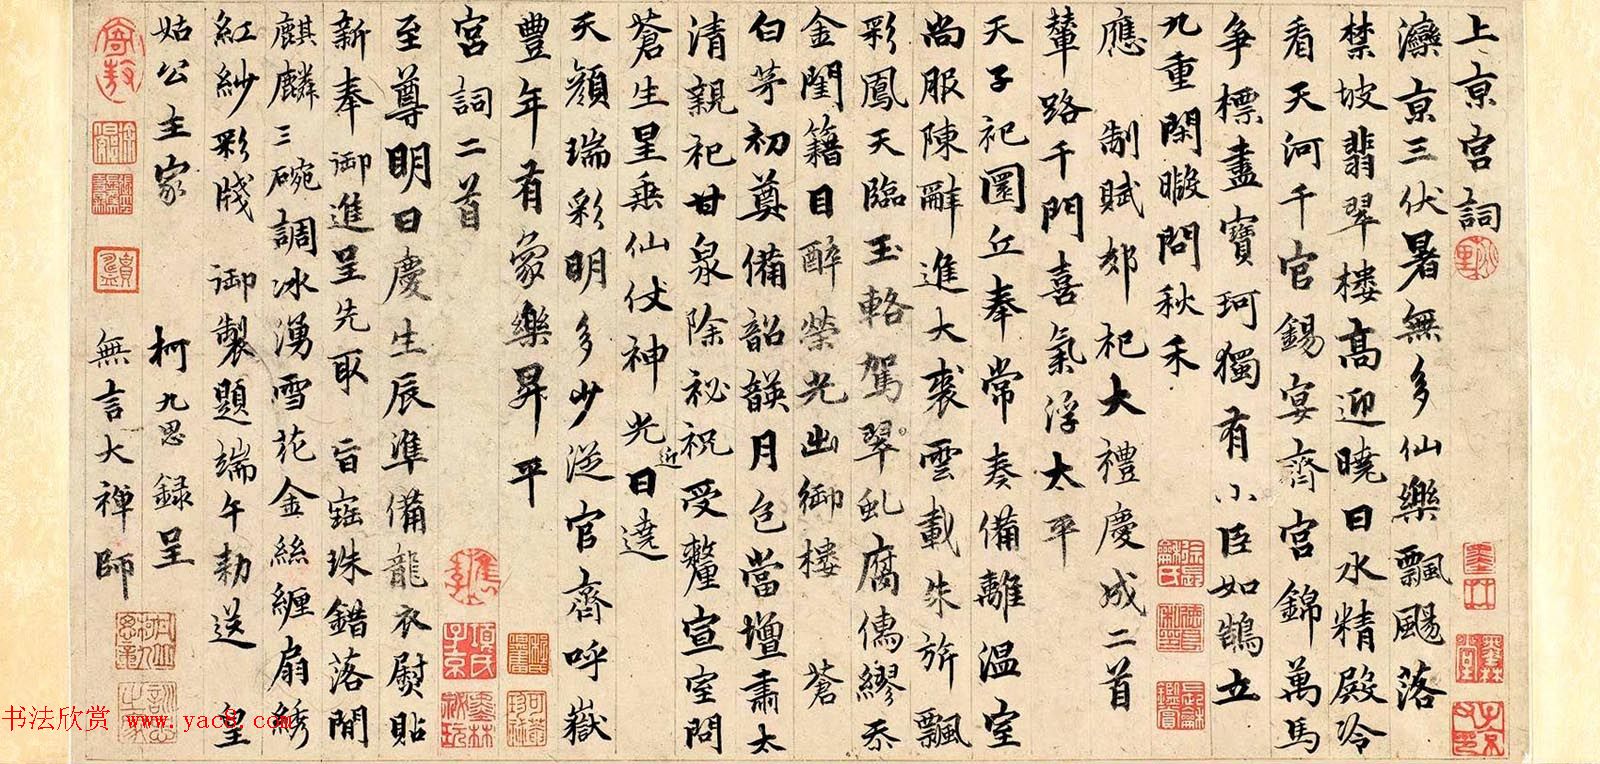 上京宮詞
灤京三伏暑無多仙樂飄颺落
禁坡翡翠樓高迎曉日水精殿冷
看天河千官錫宴齊宮錦萬馬
爭標盡寶珂獨有小臣如鵠立
九重閑暇問秋禾
應制賦郊祀大禮慶成二首
輦路千門喜氣浮太平
天子祀圜丘奉常奏備離溫室
尚服陳辭進大裘雲載朱旂飄
彩鳳天臨玉輅駕翠虬腐儒繆忝
金閨籍目醉榮光出御樓 蒼
白茅初奠備韶韺月色當壇肅太
清親祀甘泉除祕祝受釐宣室問
蒼生星垂仙仗神光近日遶
天顏瑞彩明多少從官齋呼嶽
豐年有象樂昇平
宮詞二首
至尊明日慶生辰準備龍衣熨貼
新奉御進呈先取旨瑶珠錯落間
麒麟三碗調冰湧雪花金絲纏扇綉
紅紗彩牋御製題端午勑送皇
姑公主家
柯九思錄呈
無言大禪師
項氏子京
书法欣赏 www.yac8.com